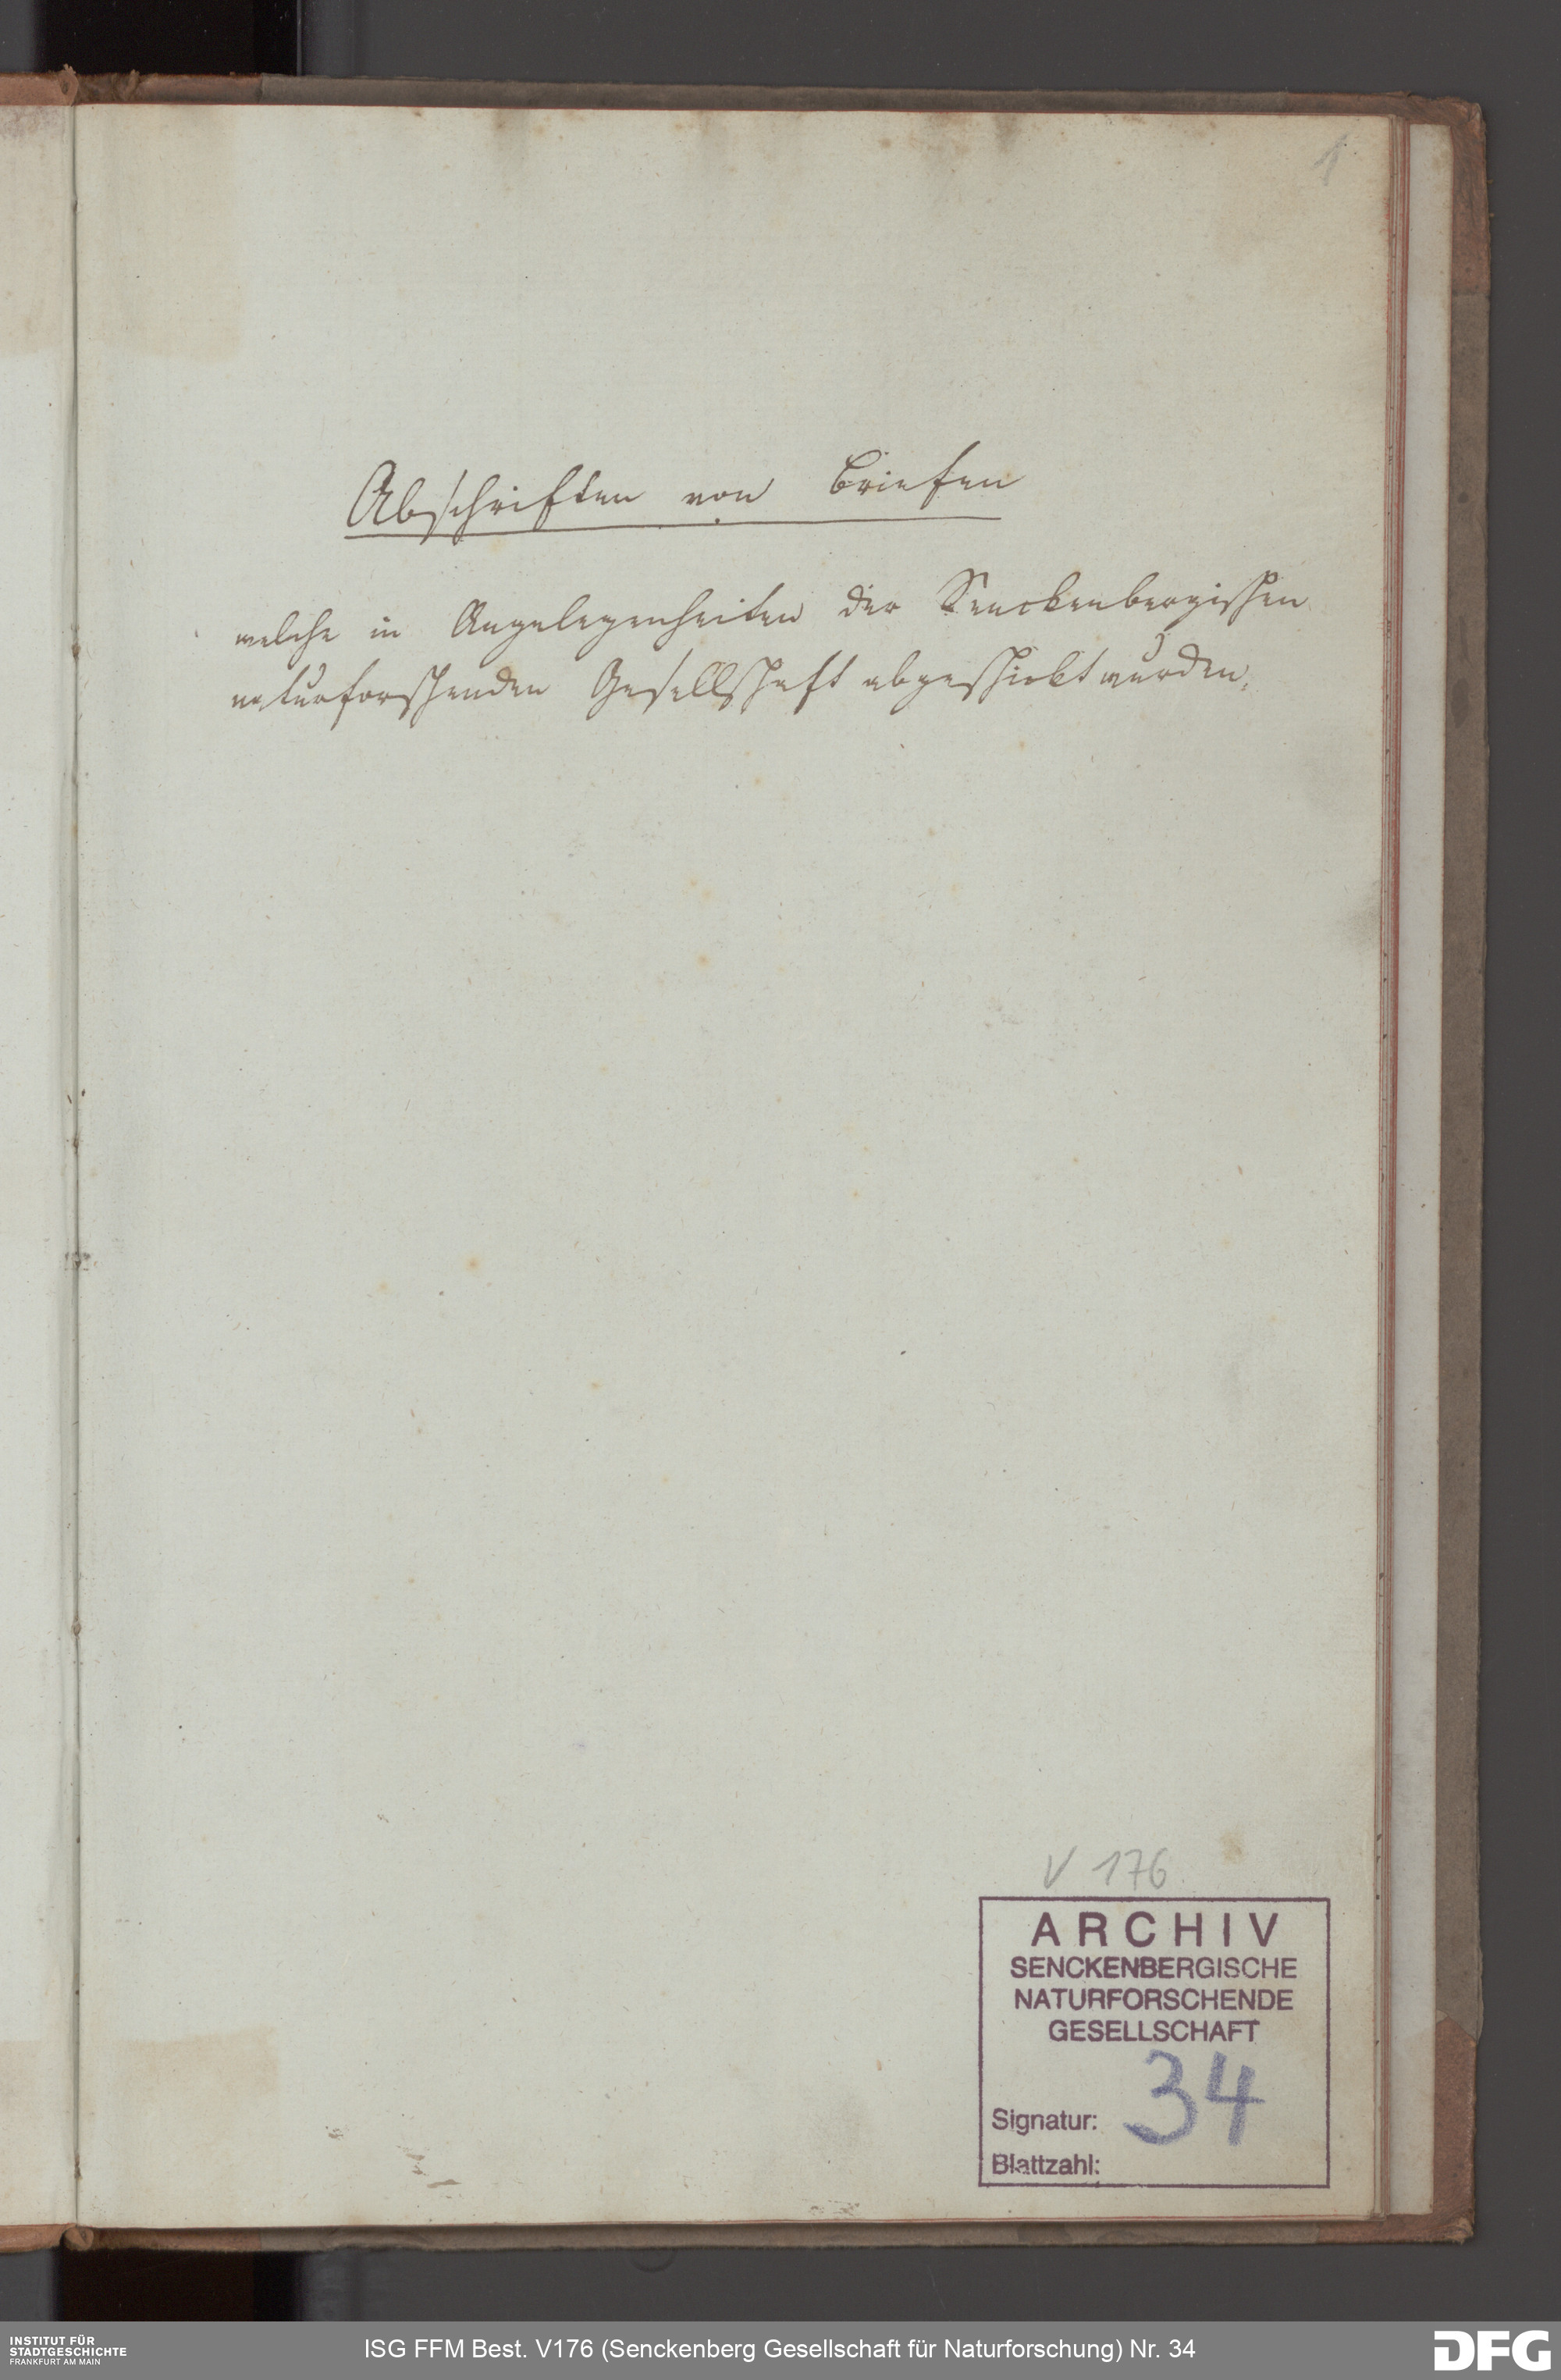 1
Abschriften von Briefen
welche in Angelegenheiten der Senckenbergischen
naturforschenden Gesellschaft abgeschickt wurden.
V 176
ARCHIV
SENCKENBERGISCHE
NATURFORSCHENDE
GESELLSCHAFT
34
Signatur:
Blattzahl:
INSTITUT FÜR
STADTGESCHICHTE
FRANKFURT AM MAIN
ISG FFM Best. V176 (Senckenberg Gesellschaft für Naturforschung) Nr. 34
DFG